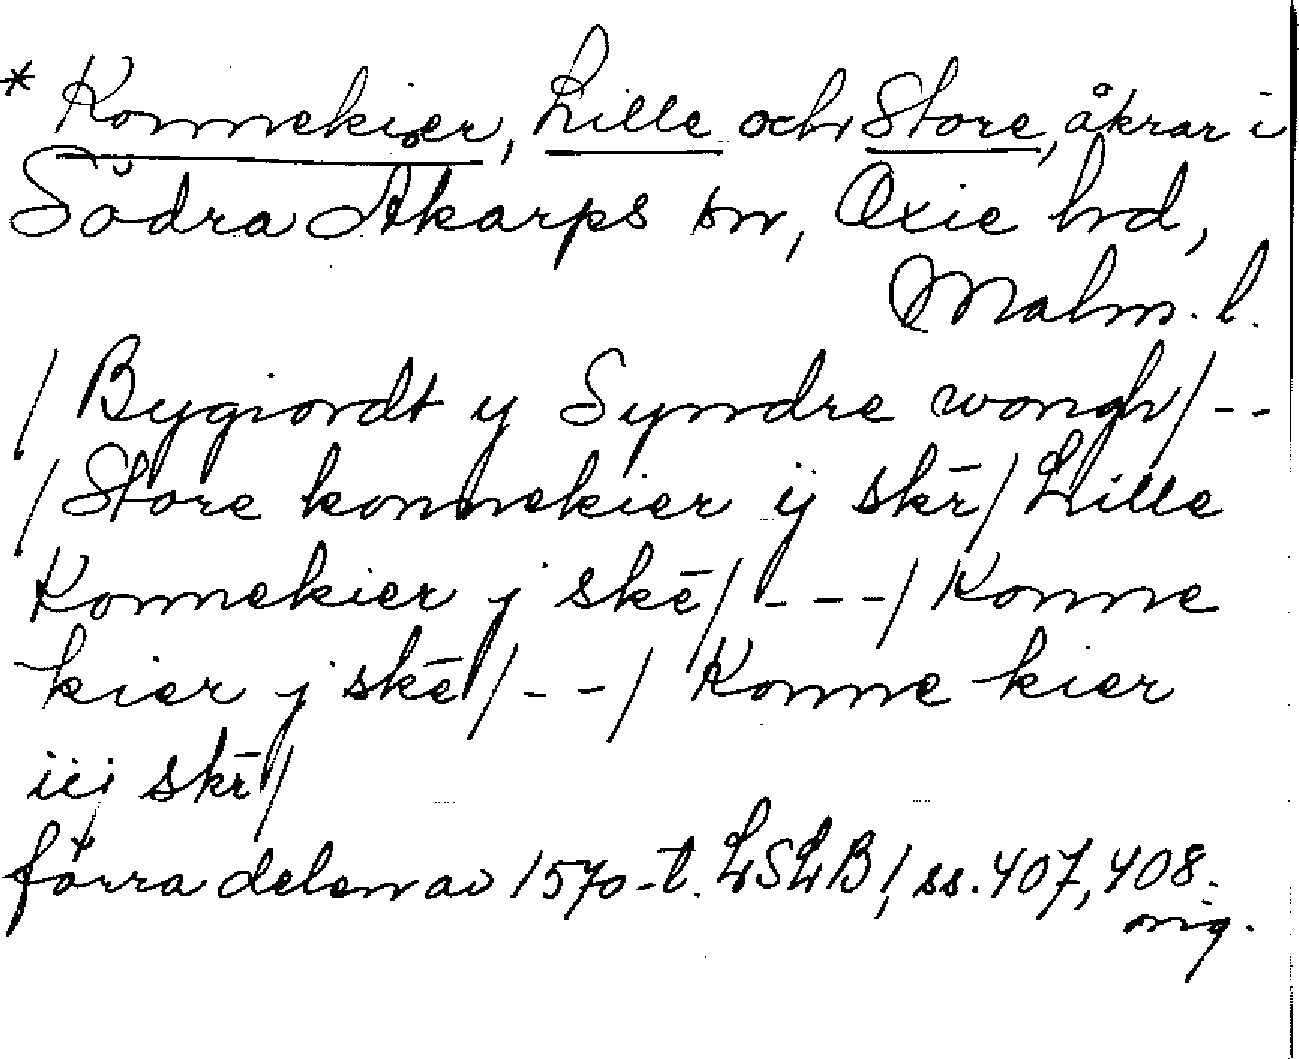 * Konnekier, Lille och Store, åkrar i
Södra Åkarps sn, Oxie hd,
Malm. l.
/ Bygiordt y Syndre wongh/--
/ Store konnekier ij skr̄/ Lille
Konnekier j skē/---/ Konne
kier j skē/--/ Konne kier
iij skr̄/
förra delen av 1570-t. LSLB, ss. 407, 408.
orig.